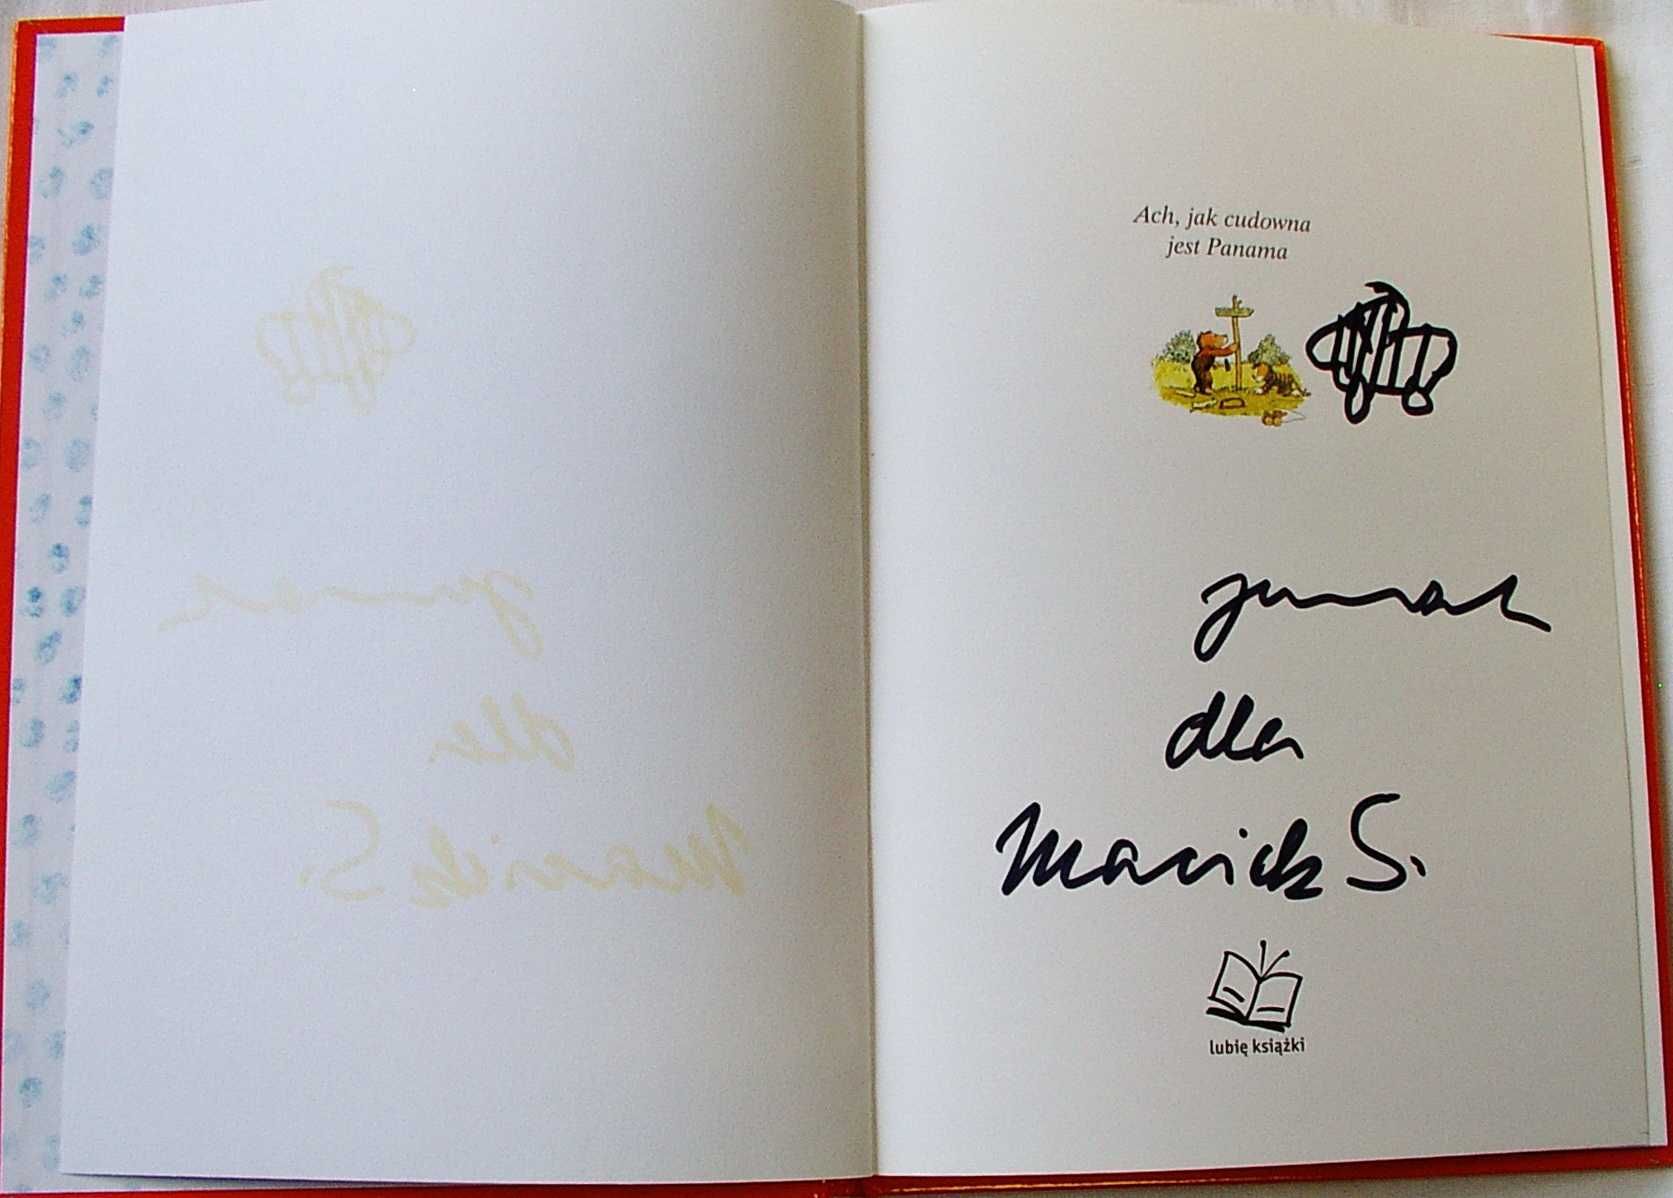 Ach, jak cudowna
jest Panama
janosch
dla
Maciek S.
lubię książki